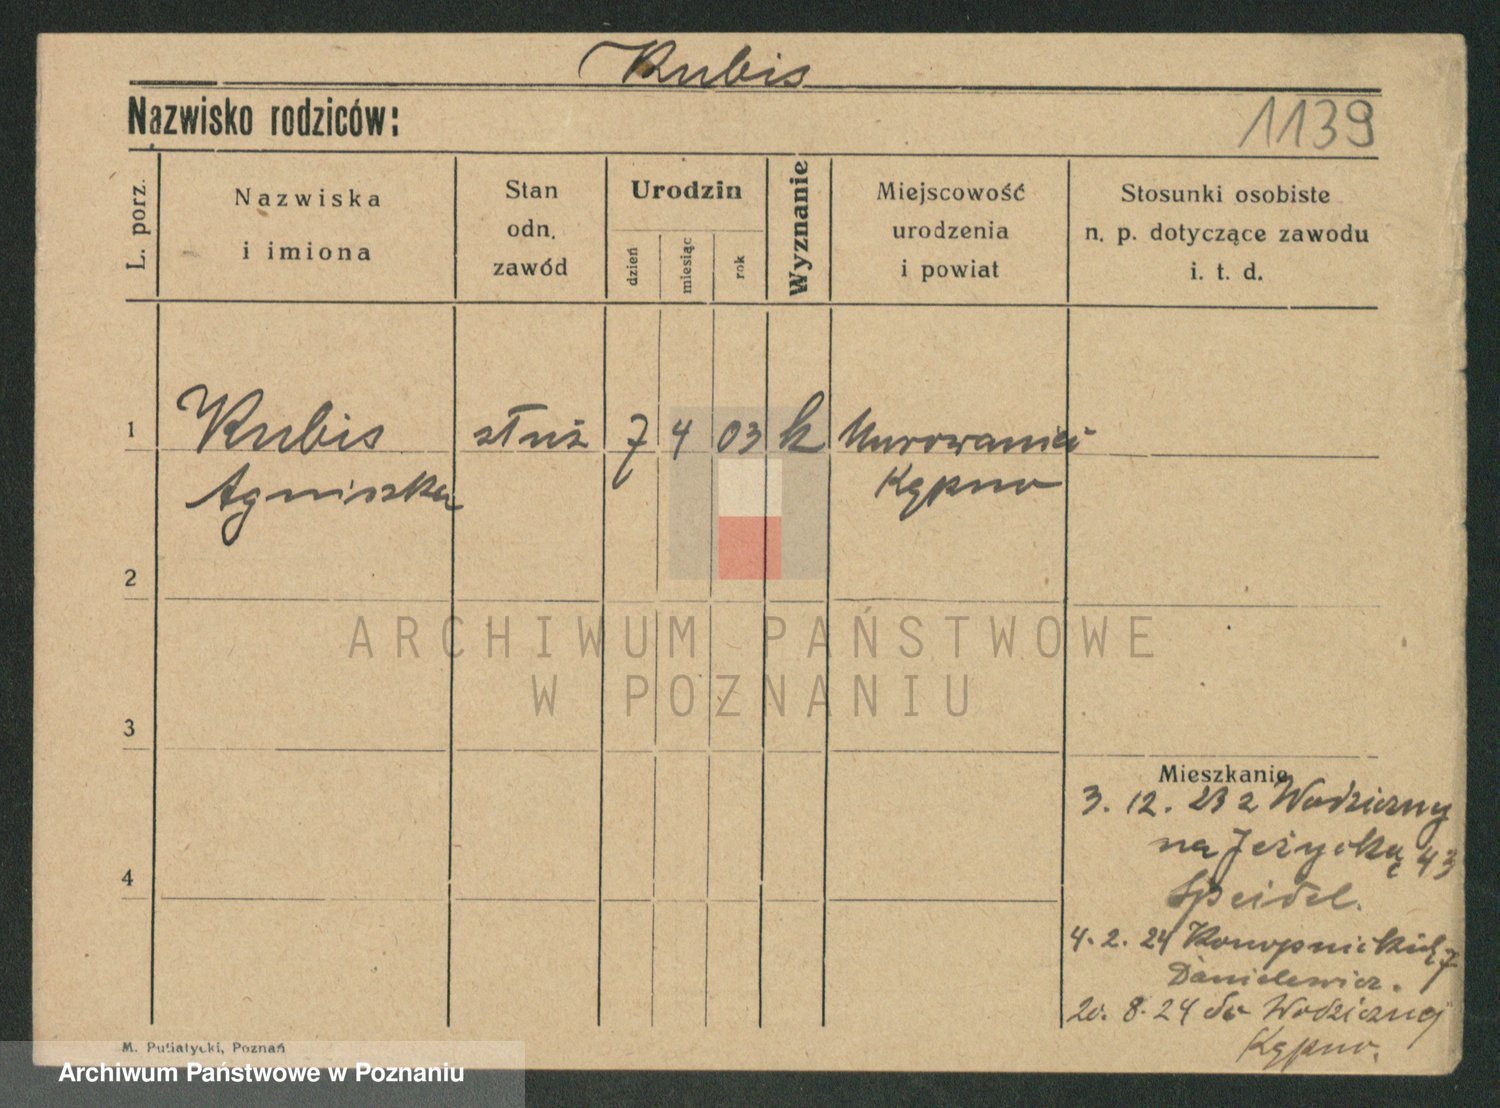 Kubis
Nazwisko rodziców:
1139
L. porz.
Nazwiska
i imiona
Stan
odn.
zawód
Urodzin
dzień
miesiąc
rok
Wyznanie
Miejscowość
urodzenia
i powiat
Stosunki osobiste
n. p. dotyczące zawodu
i. t. d.
1
Kubis
Agniszka
służ
7
4
03
k
Kępno
2
ARCHIWUM PAŃSTWOWE
W POZNANIU
3
Mieszkanie
3. 12. 23 z Wodziczny
na Jeżycką 43
Speidel.
4
4. 2. 24 7
Danielewicz.
20. 8. 24 do Wodzicznej
Kępno.
M. Putiatycki, Poznań
Archiwum Państwowe w Poznaniu